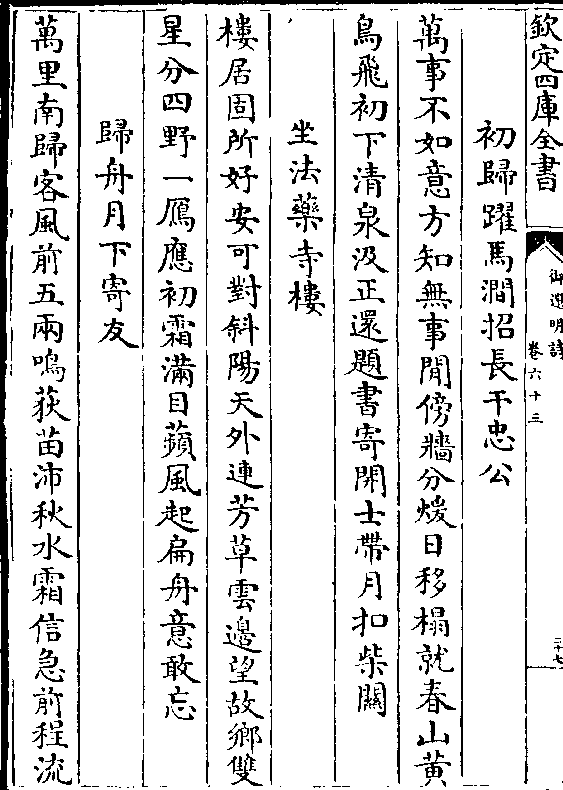 欽定四庫全書
御選明詩
卷六十三
二十七
初歸躍馬澗招長干忠公
萬事不如意方知無事閒傍牆分煖日移榻就春山黄
鳥飛初下清泉汲正還題書寄開士帶月扣柴關
坐法藥寺樓
樓居固所好安可對斜陽天外連芳草雲邉望故鄉雙
星分四野一鴈應初霜滿目蘋風起扁舟意敢忘
歸舟月下寄友
萬里南歸客風前五兩鳴荻苗沛秋水霜信急前程流